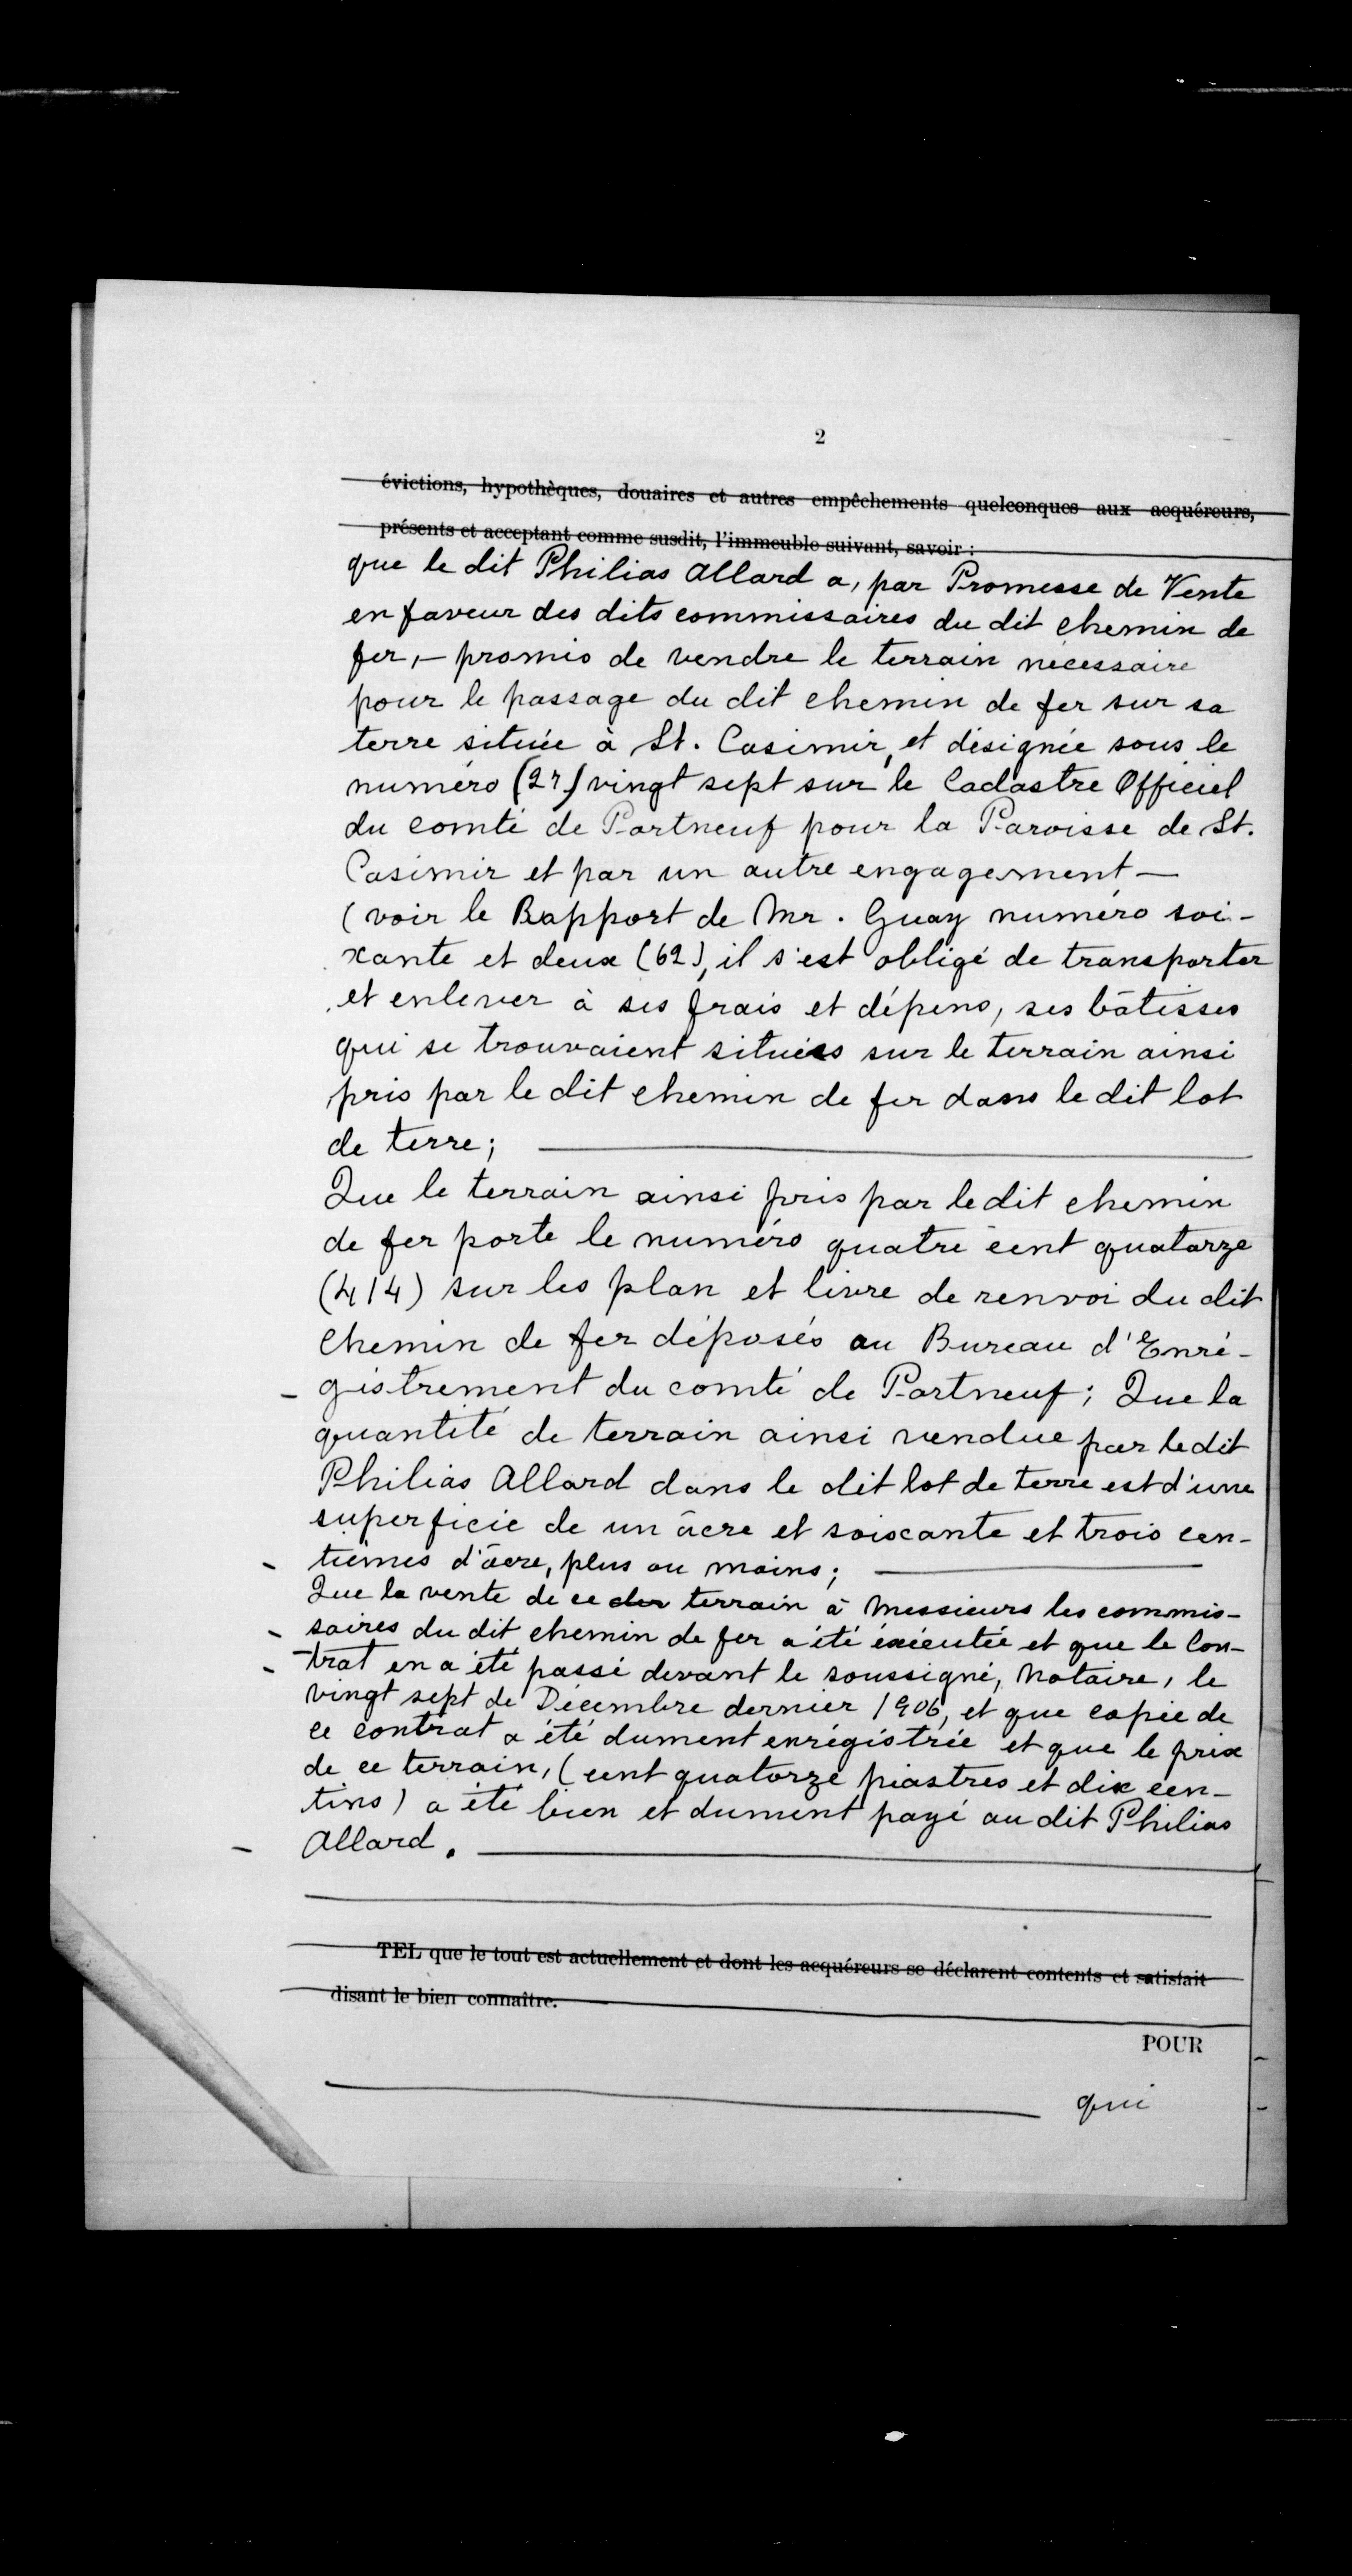 2
évictions, hypothèques, douaires et autres empêchements quelconques aux acquéreurs,
présents et acceptant comme susdit, l'immeuble suivant, savoir :
que le dit Philias Allard a, par Promesse de Vente
en faveur des dits commissaires du dit chemin de
fer, – promis de vendre le terrain nécessaire
pour le passage du dit chemin de fer sur sa
terre située à St. Casimir, et désignée sous le
numéro (27) vingt sept sur le Cadastre Officiel
du comté de Portneuf pour la Paroisse de St.
Casimir et par un autre engagement –
( voir le Rapport de Mr. Guay numéro soi-
xante et deux (62), il s'est obligé de transporter
et enlever à ses frais et dépens, ses bâtisses
qui se trouvaient situées sur le terrain ainsi
pris par le dit chemin de fer dans le dit lot
de terre;
Que le terrain ainsi pris par le dit chemin
de fer porte le numéro quatre cent quatorze
(414) sur les plan et livre de renvoi du dit
Chemin de fer déposés au Bureau d'Enré-
gistrement du comté de Portneuf; Que la
quantité de terrain ainsi vendue par le dit
Philias Allard dans le dit lot de terre est d'une
superficie de un âcre et soixante et trois cen-
tièmes d'âcre, plus ou moins;
Que la vente de ce der terrain à Messieurs les commis-
saires du dit chemin de fer a été éxécutée et que le Con-
trat en a été passé devant le soussigné, Notaire, le
vingt sept de Décembre dernier 1906, et que copie de
ce contrat a été dument enrégistrée et que le prix
de ce terrain, (cent quatorze piastres et dix cen-
tins) a été bien et dument payé au dit Philias
Allard.
TEL que le tout est actuellement et dont les acquéreurs se déclarent contents et satisfait
disant le bien connaître.
POUR
qui